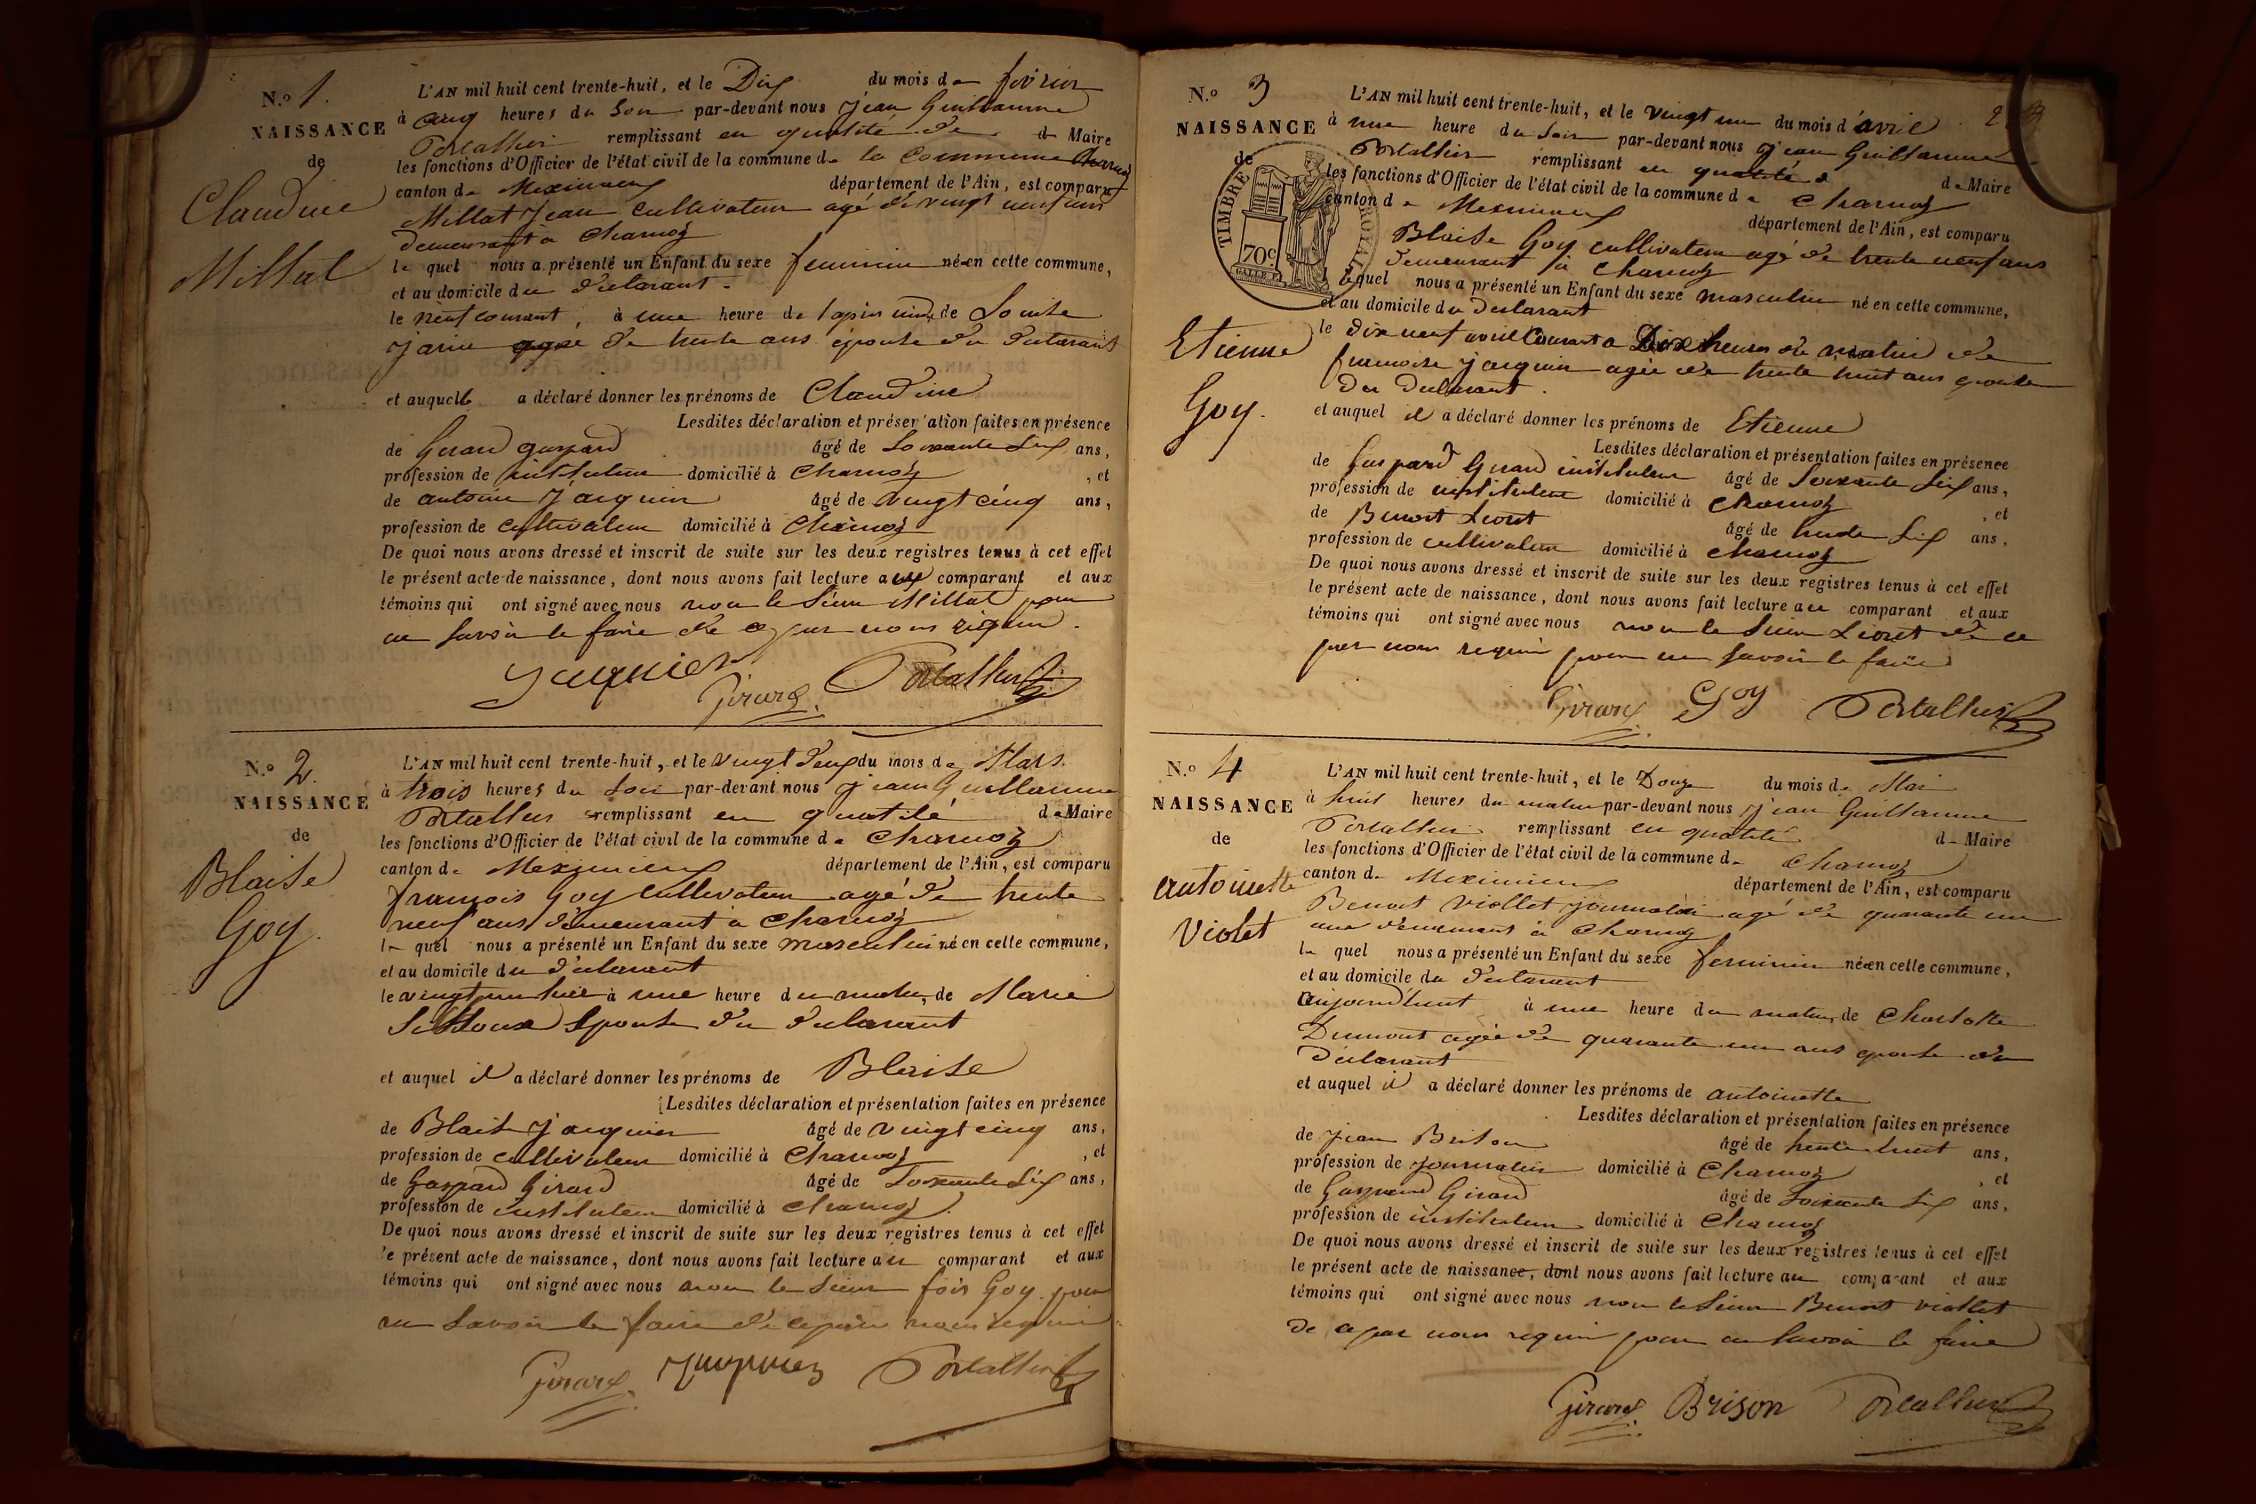 N.o 1.
NAISSANCE
de
Claudine
Millat
L'AN mil huit cent trente-huit, et le Dix du mois de février
à cinq heures du Soir par-devant nous Jean Guillaume
Portallier remplissant en qualité de de Maire
les fonctions d'Officier de l'état civil de la commune de la Commune Charnoz
canton de Meximieux département de l'Ain, est comparu
Millat Jean cultivateur agé de vingt neuf ans
demeurant à Charnoz
le quel nous a présenté un Enfant du sexe feminin né en cette commune,
et au domicile du déclarant.
le neuf courant, à une heure de de
Jarin de trente ans épouse du déclarant
et auquel a déclaré donner les prénoms de Claudine
Lesdites déclaration et présentation faites en présence
de Girard gaspard âgé de Soixante Six ans,
profession de instituteur domicilié à Charnoz , et
de antoine Jacquier âgé de vingt cinq ans,
profession de cultivateur domicilié à Charnoz
De quoi nous avons dressé et inscrit de suite sur les deux registres tenus à cet effet
le présent acte de naissance, dont nous avons fait lecture aux comparant et aux
témoins qui ont signé avec nous non le Sieur Millat pour
ne savoir le faire de ce par nous requi.
Jacquier Girard Portallier
N.o 2.
NAISSANCE
de
Blaise
Goy.
L'AN mil huit cent trente-huit, et le vingt deux du mois de Mars.
à trois heures du Soir par-devant nous Jean Guillaume
Portallier remplissant en qualité de Maire
les fonctions d'Officier de l'état civil de la commune de Charnoz
canton de Meximieux département de l'Ain, est comparu
françois Goy cultivateur agé de trente
neuf ans demeurant a Charnoz
le quel nous a présenté un Enfant du sexe masculin né en cette commune,
et au domicile du déclarant
le vingt un à une heure du matin, de Marie
épouse du déclarant
et auquel il a déclaré donner les prénoms de Blaise
Lesdites déclaration et présentation faites en présence
de Blaise Jacquier âgé de vingt cinq ans,
profession de cultivateur domicilié à Charnoz , et
de Gaspard Girard âgé de Soixante Six ans,
profession de instituteur domicilié à Charnoz.
De quoi nous avons dressé et inscrit de suite sur les deux registres tenus à cet effet
le présent acte de naissance, dont nous avons fait lecture au comparant et aux
témoins qui ont signé avec nous non le Sieur fois Goy pour
ne Savoir le faire de ce par nous requi
Girard. Jacquier Portallier
N.o 3
NAISSANCE
de
TIMBRE ROYAL
70 c.
Etienne
Goy.
L'AN mil huit cent trente-huit, et le vingt un du mois d'avril 2
à une heure du Soir par-devant nous Jean Guillaume
Portallier remplissant en qualité de Maire
les fonctions d'Officier de l'état civil de la commune de Charnoz
canton de Meximieux département de l'Ain, est comparu
Blaise Goy cultivateur agé de trente neuf ans
demeurant à Charnoz
lequel nous a présenté un Enfant du sexe masculin né en cette commune,
et au domicile du Déclarant
le dix neuf avril Courant a Dix heures de matin de
francoise Jacquier agée de trente huit ans épouse
du Déclarant.
et auquel il a déclaré donner les prénoms de Etienne
Lesdites déclaration et présentation faites en présence
de Gaspard Girard instituteur âgé de Soixante Six ans,
profession de instituteur domicilié à Charnoz , et
de Benoit Lioret âgé de trente Six ans.
profession de cultivateur domicilié à Charnoz
De quoi nous avons dressé et inscrit de suite sur les deux registres tenus à cet effet
le présent acte de naissance, dont nous avons fait lecture au comparant et aux
témoins qui ont signé avec nous non le Sieur Lioret de ce
par nous requi pour ne savoir le faire
Girard Goy Portallier
N.o 4
NAISSANCE
de
antoinette
Violet
L'AN mil huit cent trente-huit, et le Douze du mois de Mai
à huit heures du matin par-devant nous Jean Guillaume
Portallier remplissant en qualité de Maire
les fonctions d'Officier de l'état civil de la commune de Charnoz
canton de Meximieux département de l'Ain, est comparu
Benoit Viollet journalier agé de quarante un
ans demeurant à Charnoz
le quel nous a présenté un Enfant du sexe feminin né en cette commune,
et au domicile du déclarant
aujourd'huit à une heure du matin, de Charlotte
Dumont agée de quarante un ans épouse du
Déclarant
et auquel il a déclaré donner les prénoms de antoinette
Lesdites déclaration et présentation faites en présence
de Jean Brison âgé de trente huit ans,
profession de journalier domicilié à Charnoz , et
de Gaspard Girard âgé de Soixante Six ans,
profession de instituteur domicilié à Charnoz
De quoi nous avons dressé et inscrit de suite sur les deux registres tenus à cet effet
le présent acte de naissance, dont nous avons fait lecture au comparant et aux
témoins qui ont signé avec nous non le Sieur Benoit viollet
de ce par nous requi pour ne savoir le faire
Girard. Brison Portallier